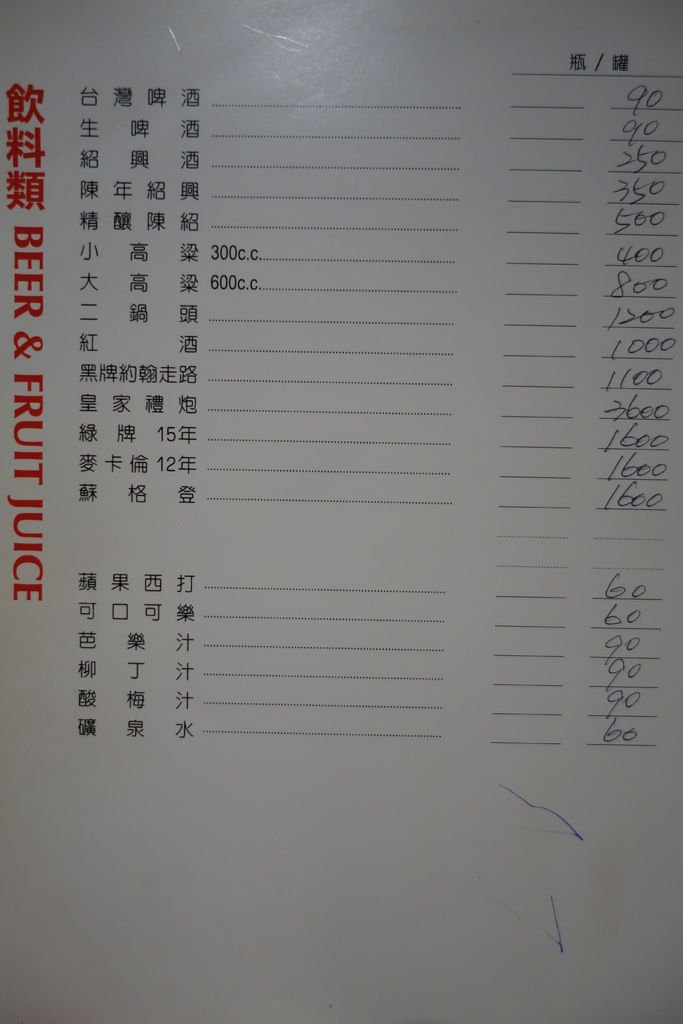 飲料類 BEER & FRUIT JUICE
瓶 / 罐
台灣啤酒 90
生啤酒 90
紹興酒 250
陳年紹興 350
精釀陳紹 500
小高粱 300c.c. 400
大高粱 600c.c. 800
二鍋頭 1200
紅酒 1000
黑牌約翰走路 1100
皇家禮炮 3600
綠牌 15年 1600
麥卡倫 12年 1600
蘇格登 1600
蘋果西打 60
可口可樂 60
芭樂汁 90
柳丁汁 90
酸梅汁 90
礦泉水 60